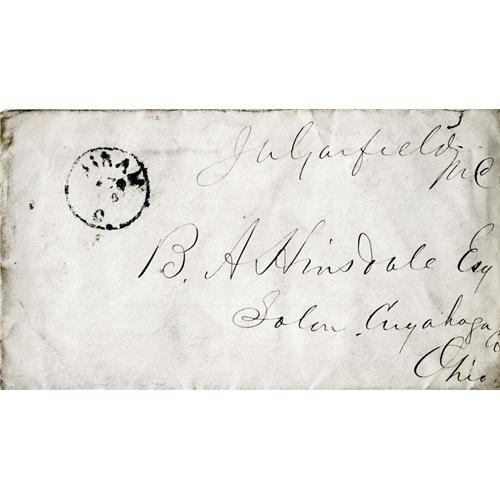 J A Garfield
M C
HIRAM
O.
B. A Hinsdale Esq
Solon Cuyahoga Co
Ohio.